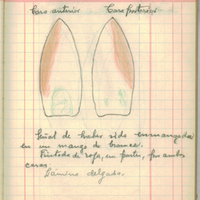 Cara anterior Cara posterior
Señal de haber sido enmangada
en un mango de
Pintada de rojo, en parte, por ambas
caras
Laminar delgado